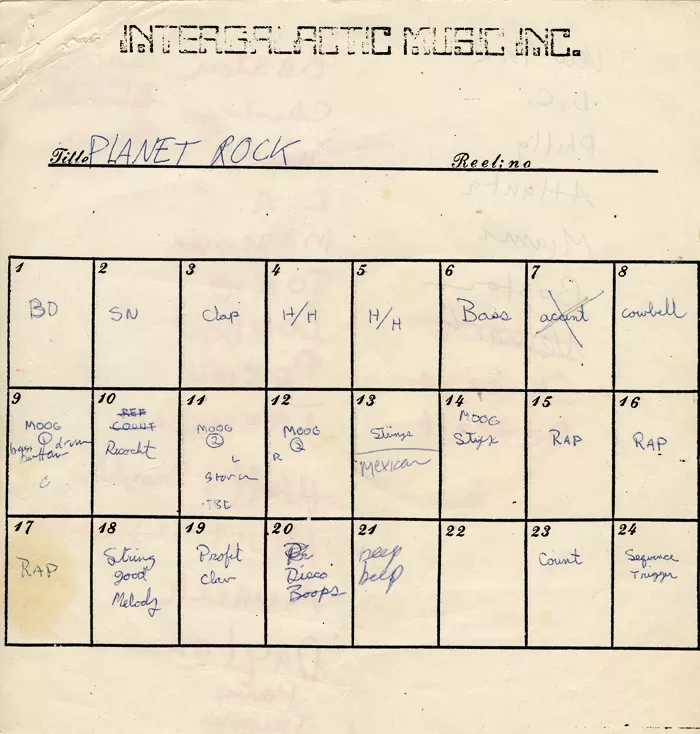 INTERGALACTIC MUSIC INC.
Title PLANET ROCK Reel:no
1 2 3 4 5 6 7 8
BD SN Clap H/H H/H Bass accent cowbell
9 10 11 12 13 14 15 16
MOOG
1 drum
bass
C
REF
COUNT
Ricocht
MOOG
2
L
MOOG
2
R
Strings
Mexican
MOOG
Styx
RAP
RAP
17 18 19 20 21 22 23 24
RAP
String
good
Melody
Profit
Clav
Disco
Boops
beep
beep
Count
Sequence
Trigger